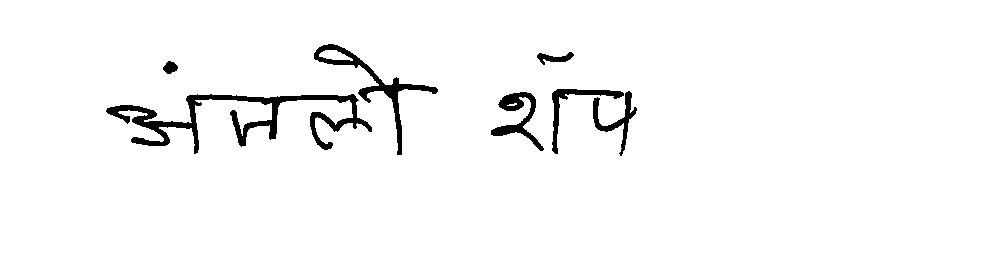 अंमली शॉप